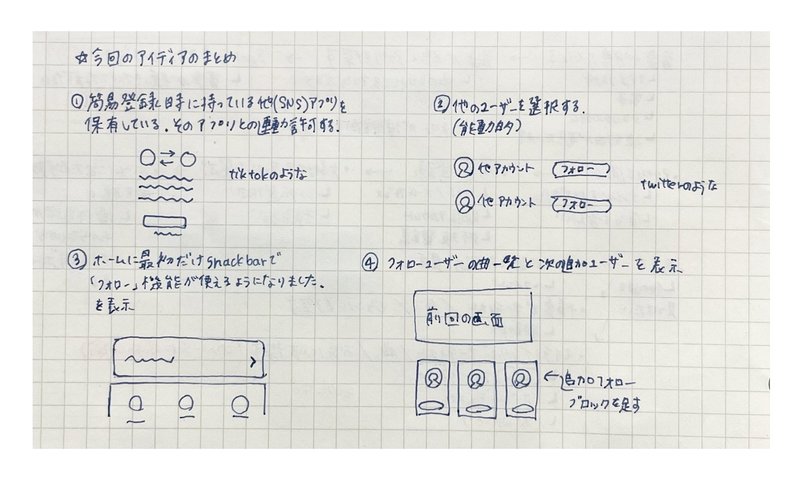 ☆今回のアイディアのまとめ
① 簡易登録時に持っている他(SNS)アプリを
保有している。そのアプリとの連動許可する。
tiktokのような
② 他のユーザーを選択する。
(能動的)
他アカウント フォロー
他アカウント フォロー
twitterのような
③ ホームに最初だけsnackbarで
「フォロー」機能が使えるようになりました。
を表示
④ フォローユーザーの一覧と次の追加ユーザーを表示
前回の画面
←追加フォロー
ブロックを足す